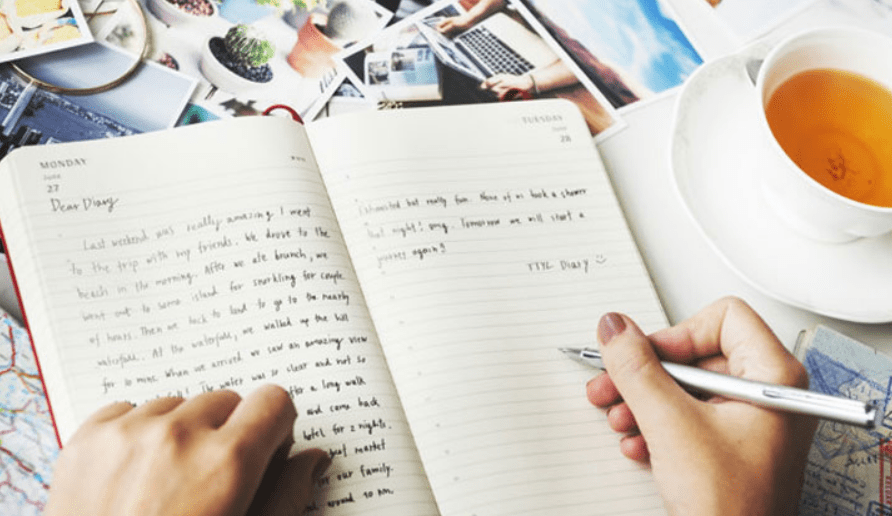 MONDAY
June
27
Dear Diary
Last weekend was really amazing I went
to the trip with my friends. We drove to the
beach in the morning. After we ate brunch, we
went out to some island for snorkling for couple
of hours. Then we back to land to go to the nearby
waterfall. At the waterfall, we walked up the hill
for 30 mins. When we arrived we saw an amazing view
The water was so clear and not so
after a long walk
and came back
hotel for 2 nights.
market
for our family.
around 10 pm.
TUESDAY
June
28
Exhausted but really fun. None of us took a shower
that night! omg. Tomorrow we will start a
journey again!
TTYL Diary